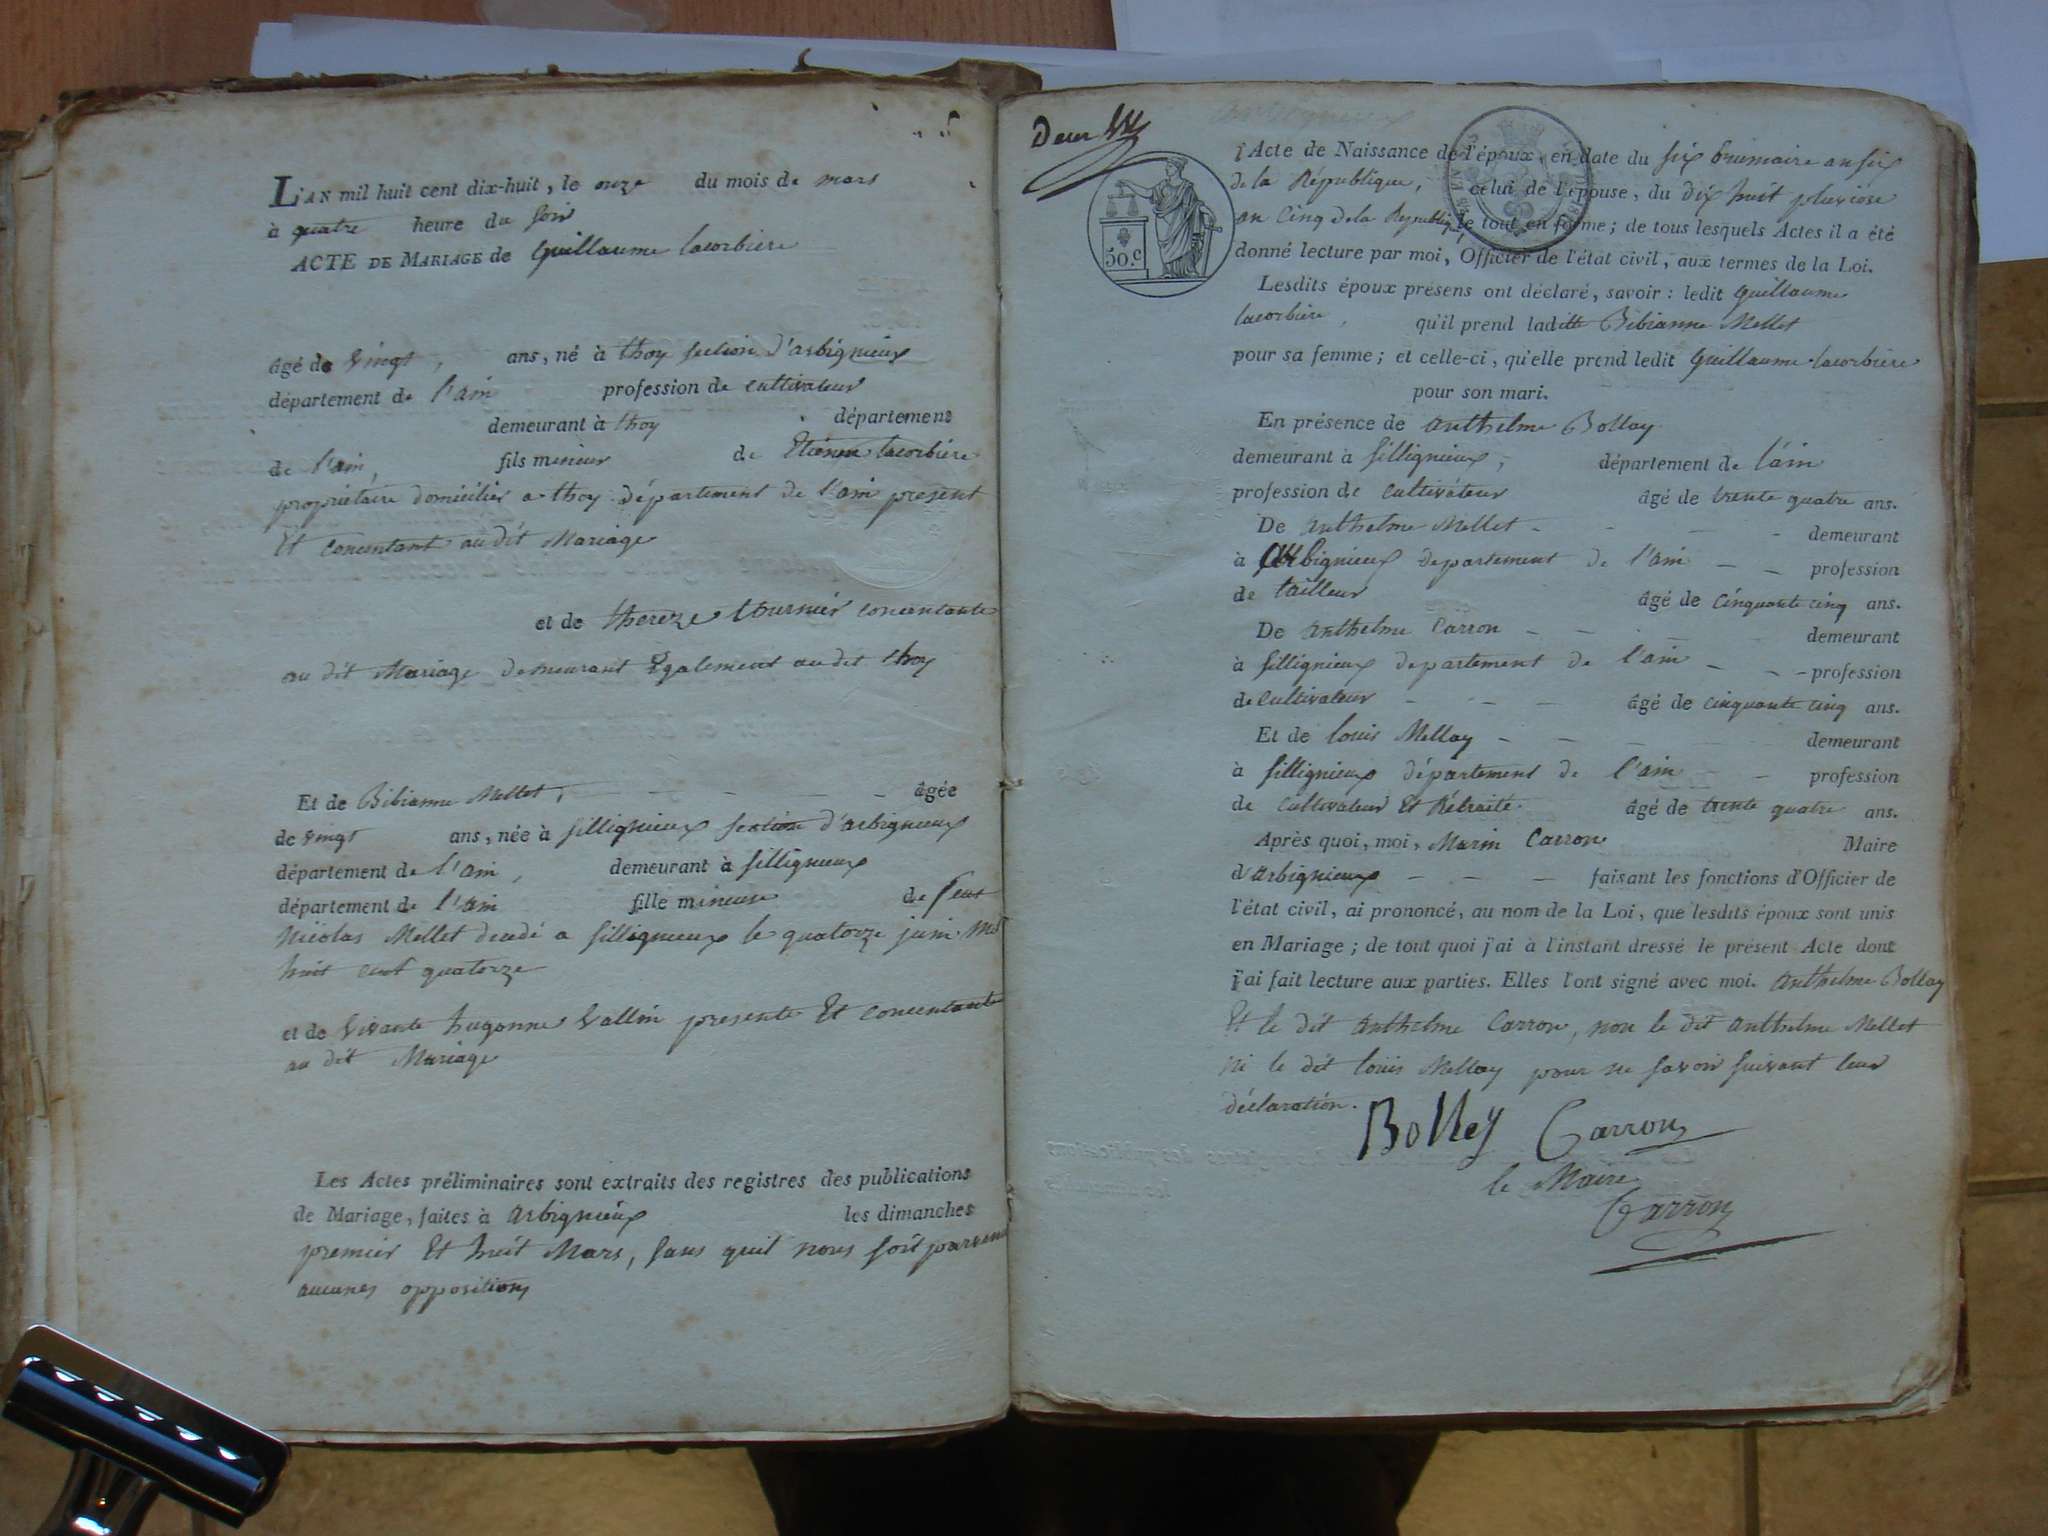 L'AN mil huit cent dix-huit, le onze du mois de mars
à quatre heure du soir
ACTE DE MARIAGE de Guillaume lacorbiere
âgé de vingt, ans, né à thoy section d'arbignieux
département de l'ain profession de cultivateur
demeurant à thoy département
de l'ain, fils mineur de Etienne lacorbière
propriétaire domicilier a thoy département de l'ain present
Et concentant au dit Mariage
et de thereze tournier concentante
au dit Mariage demeurant Egalement au dit thoy
Et de Bibianne Mellet, âgée
de vingt ans, née à sillignieux section d'arbignieux
département de l'ain, demeurant à sillignieux
département de l'ain fille mineure de feut
Nicolas Mellet decedé a sillignieux le quatorze juin mil
huit cent quatorze
et de vivante hugonne vallin presente Et concentante
au dit Mariage
Les Actes préliminaires sont extraits des registres des publications
de Mariage, faites à arbignieux les dimanches
premier Et huit Mars, sans quil nous soit parvenu
aucunes oppositions
Deux
50.c
l'Acte de Naissance de l'époux, en date du six brumaire an six
de la République, celui de l'épouse, du dix huit pluviose
an cinq de la Republique le tout en forme; de tous lesquels Actes il a été
donné lecture par moi, Officier de l'état civil, aux termes de la Loi.
Lesdits époux présens ont déclaré, savoir: ledit Guillaume
lacorbiere, qu'il prend laditte Bibianne Mellet
pour sa femme; et celle-ci, qu'elle prend ledit Guillaume lacorbiere
pour son mari.
En présence de anthelme Bollay
demeurant à sillignieux, département de l'ain
profession de cultivateur âgé de trente quatre ans.
De anthelme Mellet demeurant
à arbignieux departement de l'ain profession
de tailleur âgé de cinquante cinq ans.
De anthelme Carron demeurant
à sillignieux departement de l'ain profession
de cultivateur âgé de cinquante cinq ans.
Et de louis Mellay demeurant
à sillignieux département de l'ain profession
de cultivateur Et Rétraité âgé de trente quatre ans.
Après quoi, moi, Marin Carron Maire
d'arbignieux faisant les fonctions d'Officier de
l'état civil, ai prononcé, au nom de la Loi, que lesdits époux sont unis
en Mariage; de tout quoi j'ai à l'instant dressé le présent Acte dont
j'ai fait lecture aux parties. Elles l'ont signé avec moi. anthelme Bollay
Et le dit anthelme Carron, non le dit anthelme Mellet
ni le dit louis Mellay pour ne savoir suivant leur
déclaration.
Bolley Carron
le Maire
Carron